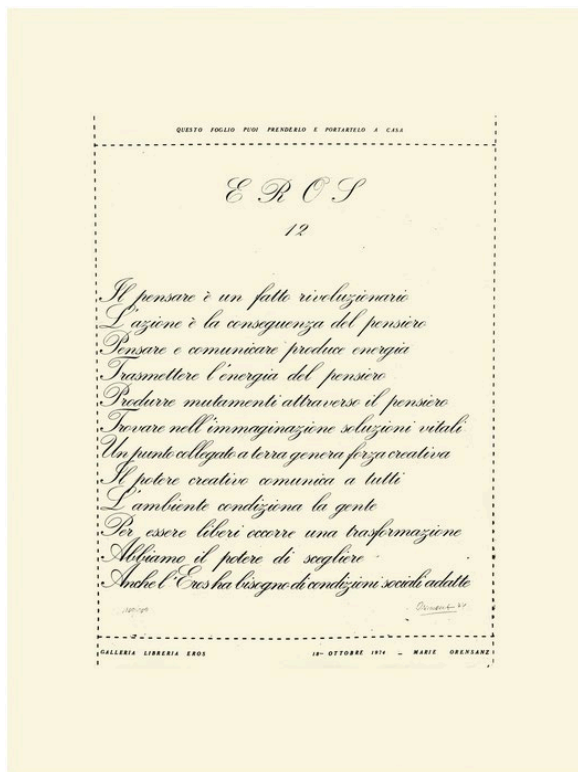 QUESTO FOGLIO PUOI PRENDERLO E PORTARTELO A CASA
EROS
12
Il pensare è un fatto rivoluzionario
L'azione è la conseguenza del pensiero
Pensare e comunicare produce energia
Trasmettere l'energia del pensiero
Produrre mutamenti attraverso il pensiero
Trovare nell'immaginazione soluzioni vitali
Un punto collegato a terra genera forza creativa
Il potere creativo comunica a tutti
L'ambiente condiziona la gente
Per essere liberi occorre una trasformazione
Abbiamo il potere di scegliere
Anche l'Eros ha bisogno di condizioni sociali adatte
GALLERIA LIBRERIA EROS OTTOBRE 1974 - MARIE ORENSANZ